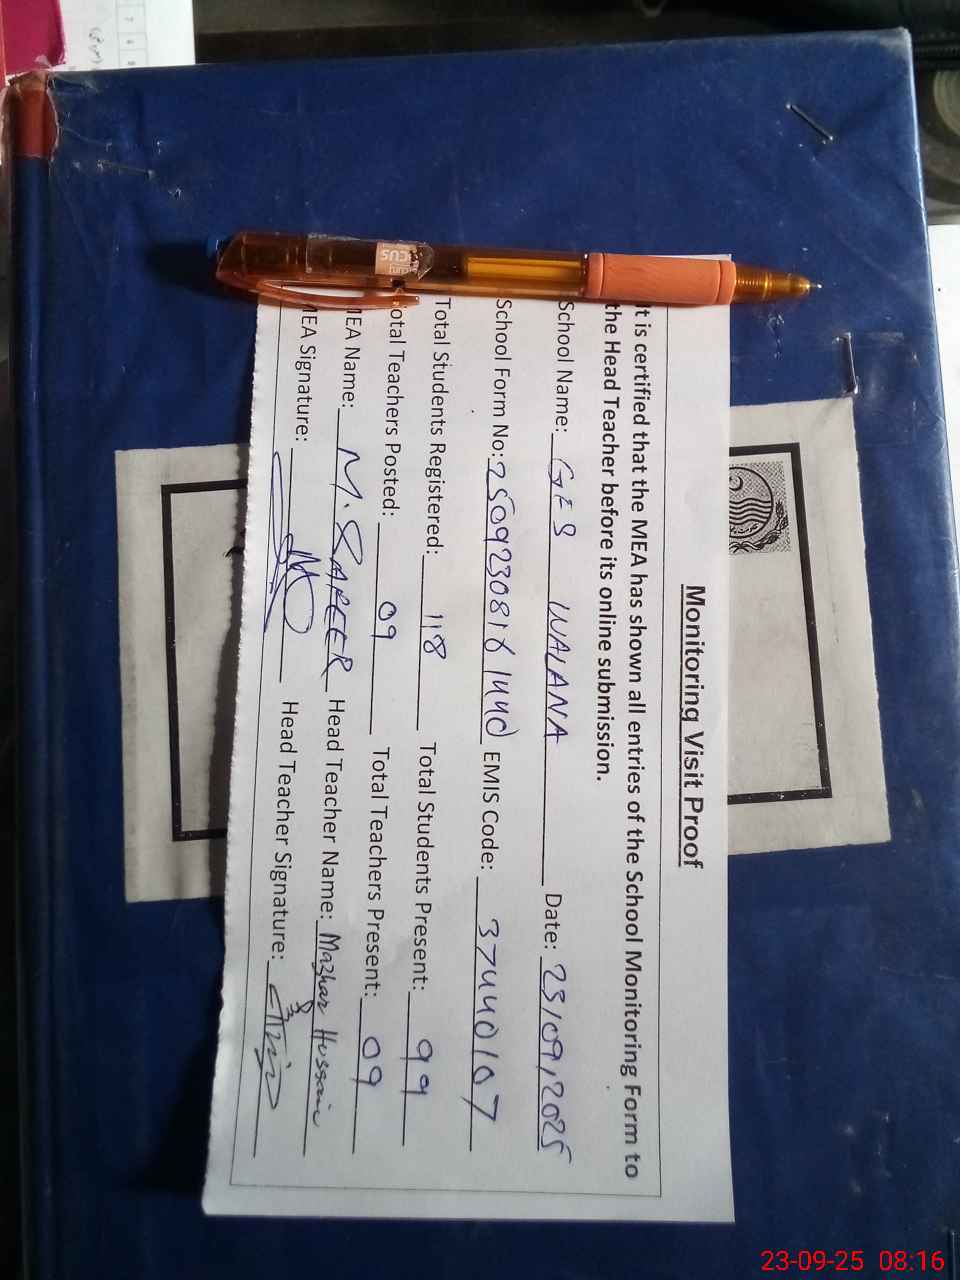 Monitoring Visit Proof
It is certified that the MEA has shown all entries of the School Monitoring Form to
the Head Teacher before its online submission.
School Name: GES WALANA Date: 23/09/2025
School Form No: 2509230816144d EMIS Code: 37440107
Total Students Registered: 118 Total Students Present: 99
Total Teachers Posted: 09 Total Teachers Present: 09
MEA Name: M. SAFEER Head Teacher Name: Mazhar Hussain
MEA Signature: Head Teacher Signature:
23-09-25 08:16